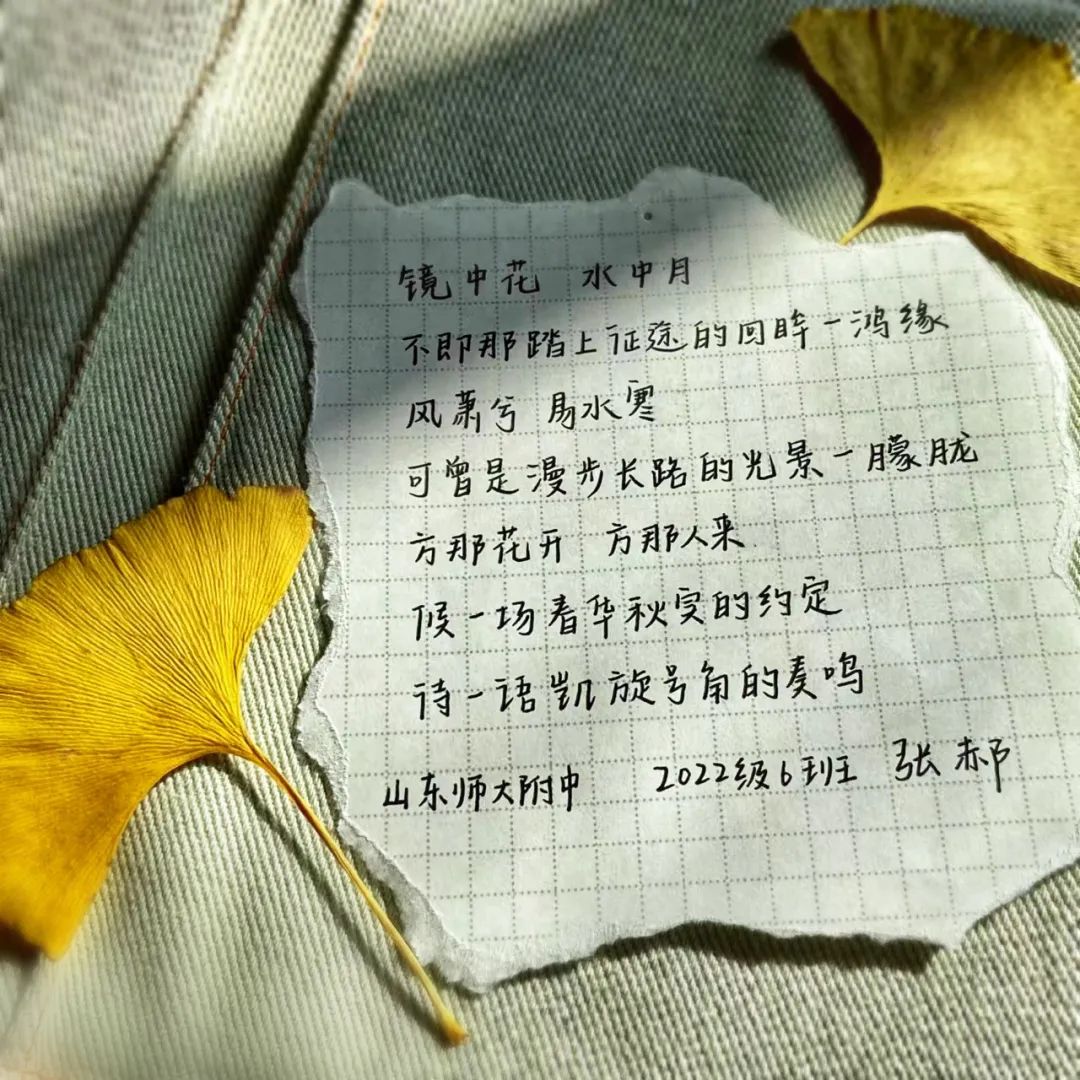 镜中花 水中月
不即那踏上征途的回眸一鸿缘
风萧兮 易水寒
可曾是漫步长路的光景一朦胧
方那花开 方那人来
候一场春华秋实的约定
诗一语凯旋号角的奏鸣
山东师大附中 2022级6班 张郝